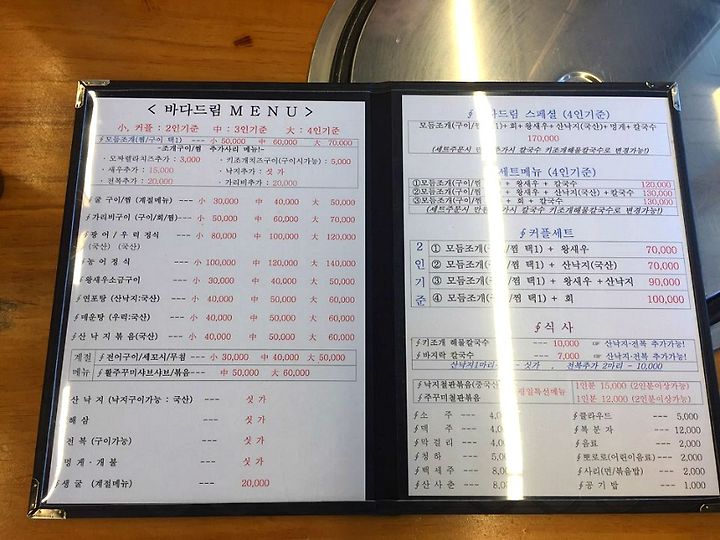 < 바다드림 MENU >
小, 커플 : 2인기준 中 : 3인기준 大 : 4인기준
∮모듬조개(찜/구이 택1) --- 小 50,000 中 60,000 大 70,000
-조개구이/찜 추가사리 메뉴!-
- 모짜렐라치즈추가 : 3,000 - 키조개치즈구이(구이시가능) : 5,000
- 새우추가 : 15,000 - 낙지추가 : 싯 가
- 전복추가 : 20,000 - 가리비추가 : 20,000
∮굴 구이/찜 (계절메뉴) --- 小 30,000 中 40,000 大 50,000
∮가리비구이 (구이/회/찜)--- 小 50,000 中 60,000 大 70,000
∮광어/우럭정식 --- 小 80,000 中 100,000 大 120,000
(국산) (국산)
∮농어정식 --- 小 100,000 中 120,000 大 140,000
∮왕새우소금구이 --- 小 30,000 中 40,000 大 50,000
∮연포탕 (산낙지:국산) --- 小 40,000 中 50,000 大 60,000
∮매운탕 (우럭:국산) --- 小 40,000 中 50,000 大 60,000
∮산낙지볶음(국산) --- 小 40,000 中 50,000 大 60,000
계절 ∮전어구이/세꼬시/무침 --- 小 30,000 中 40,000 大 50,000
메뉴 ∮활주꾸미샤브샤브/볶음--- 中 50,000 大 60,000
산 낙 지 (낙지구이가능 : 국산) --- 싯가
해 삼 --- 싯가
전 복 (구이가능) --- 싯가
멍게 · 개불 --- 싯가
∮생굴 (계절메뉴) --- 20,000
드림 스페셜 (4인기준)
모듬조개(구이/찜 택1)+ 회+ 왕새우+ 산낙지(국산)+ 멍게+ 칼국수
170,000
추가시 칼국수 키조개해물칼국수로 변경가능!)
세트메뉴 (4인기준)
①모듬조개(구이/찜 택1) + 왕새우 + 칼국수 120,000
②모듬조개(구이/찜 택1) + 왕새우 + 산낙지(국산) +칼국수 130,000
③모듬조개(구이/찜 택1) + 회 + 칼국수 130,000
추가시 칼국수 키조개해물칼국수로 변경가능!)
∮커플세트
2인기준
① 모듬조개(구이/찜 택1) + 왕새우 70,000
② 모듬조개(구이/찜 택1) + 산낙지(국산) 70,000
③ 모듬조개(구이/찜 택1) + 왕새우 +산낙지 90,000
④ 모듬조개(구이/찜 택1) + 회 100,000
∮식 사
∮키조개 해물칼국수 --- 10,000 or 산낙지·전복 추가가능!
∮바지락 칼국수 --- 7,000 or 산낙지·전복 추가가능!
산낙지1마리 --- 싯가 , 전복추가 2마리 - 10,000
∮낙지철판볶음(중국산) 평일특선메뉴 1인분 15,000 (2인분이상가능)
∮주꾸미철판볶음 1인분 12,000 (2인분이상가능)
∮소 주 --- ∮클라우드 --- 5,000
∮맥 주 --- ∮복분자 --- 12,000
∮막걸리 --- ∮음료 --- 2,000
∮청하 --- ∮뽀로로(어린이음료) --- 2,000
∮백세주 --- ∮사리(면/볶음밥) --- 2,000
∮산사춘 --- ∮공기밥 --- 1,000